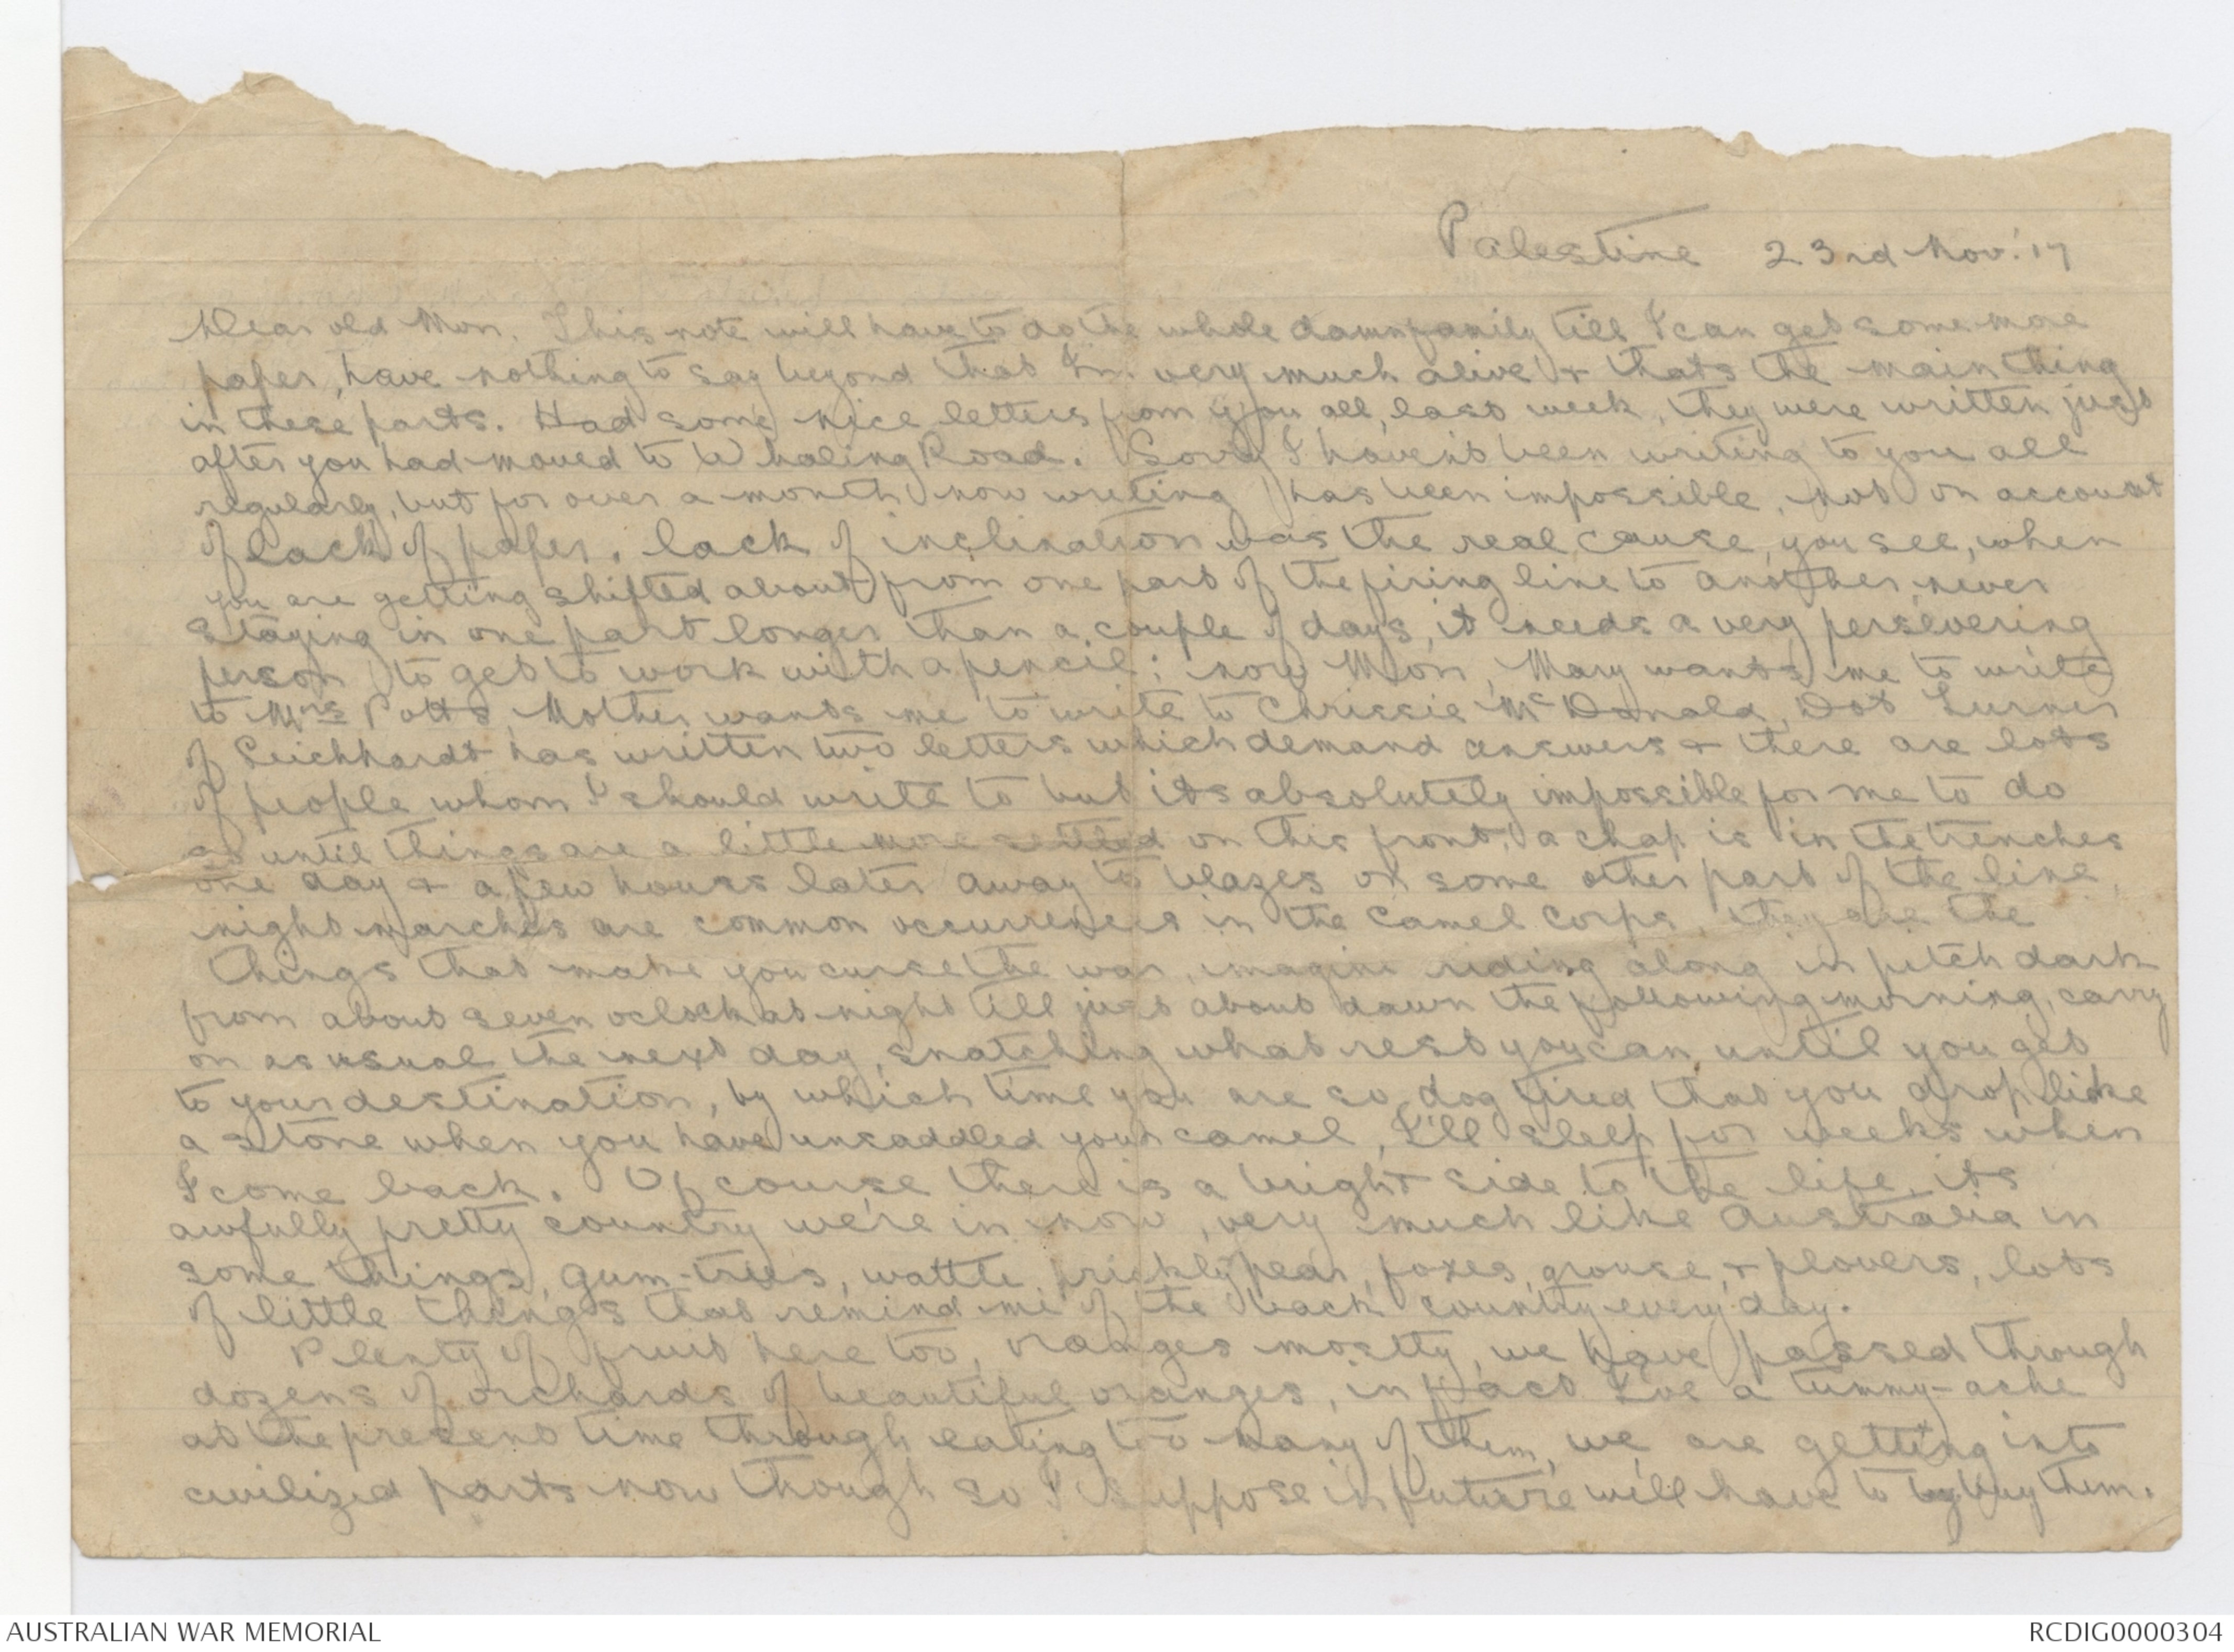 Palestine 23rd Nov. '17
Dear old Mon. This note will have to do the whole damn family till I can get some more
paper, have nothing to say beyond that I'm very much alive & thats the main thing
in these parts. Had some nice letters from you all, last week, they were written just
after you had moved to Whaling Road. Sorry I havent been writing to you all
regularly, but for over a month now writing has been impossible, not on account
of lack of paper, lack of inclination was the real cause, you see, when
you are getting shifted about from one part of the firing line to another, never
staying in one part longer than a couple of days, it needs a very persevering
person to get to work with a pencil; now Mon, Mary wants me to write
to Mrs Potts, Mother wants me to write to Chrissie McDonald, Dot Turner
of Leichhardt has written two letters which demand answers & there are lots
of people whom I should write to but its absolutely impossible for me to do
so until things are a little more settled on this front, a chap is in the trenches
one day & a few hours later away to blazes on some other part of the line,
night marches are common occurrences in the Camel Corps, they are the
things that make you curse the war, imagine riding along in pitch dark
from about seven oclock at night till just about dawn the following morning, carry
on as usual the next day, snatching what rest you can, until you get
to your destination, by which time you are so dog tired that you drop like
a stone when you have unsaddled your camel, I'll sleep for weeks when
I come back. Of course there is a bright side to the life, its
awfully pretty country we're in now, very much like Australia in
some things, gum-trees, wattle, prickly pear, foxes, grouse, & plovers, lots
of little things that remind me of the back country every day.
Plenty of fruit here too, oranges mostly, we have passed through
dozens of orchards of beautiful oranges, in fact I've a tummy-ache
at the present time through eating too many of them, we are getting into
civilized parts now though so I suppose in future will have to buy them.
AUSTRALIAN WAR MEMORIAL
RCDIG0000304